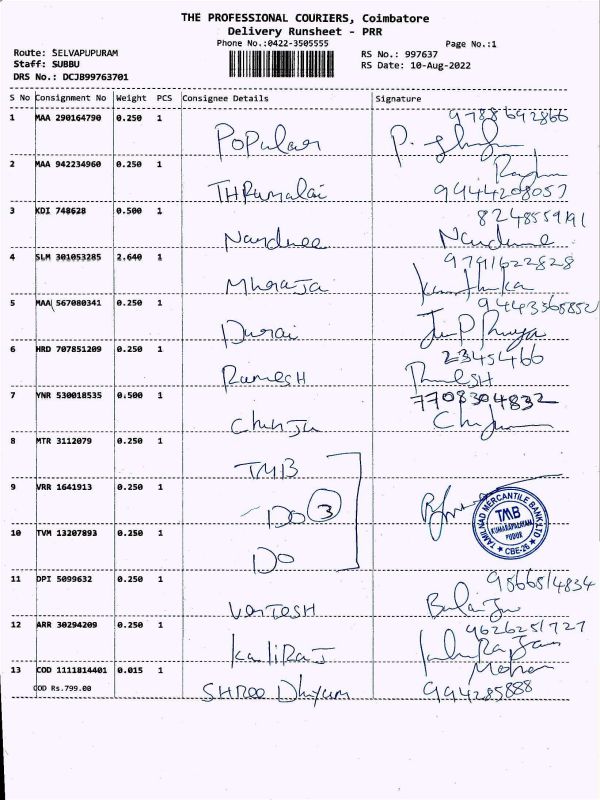 THE PROFESSIONAL COURIERS, Coimbatore
Delivery Runsheet - PRR
Phone No.:0422-3505555
Page No.:1
Route: SELVAPUPURAM
RS No.: 997637
Staff: SUBBU
RS Date: 10-Aug-2022
DRS No.: DCJB99763701
S No Consignment No Weight PCS Consignee Details Signature
1 MAA 290164790 0.250 1 Popular 9788692866
2 MAA 942234960 0.250 1 THRumalai 9944208057
3 KDI 748628 0.500 1 8248559191
4 SLM 301053285 2.640 1 9791622828
5 MAA 567080341 0.250 1 Durai 9443565852
6 HRD 707851209 0.250 1 RamesH 2345466
7 YNR 530018535 0.500 1 7708304832
8 MTR 3112079 0.250 1 TMB
9 VRR 1641913 0.250 1 DO 3
TAMIL NAD MERCANTILE BANK LTD
TMB
KUMARAPALAYAM
PUDUR
CBE-26
10 TVM 13207893 0.250 1 DO
11 DPI 5099632 0.250 1 VenTesH 9566514834
12 ARR 30294209 0.250 1 KaliRaJ 9626251727
13 COD 1111814401 0.015 1 SHRee Mohan
COD Rs.799.00 994285888